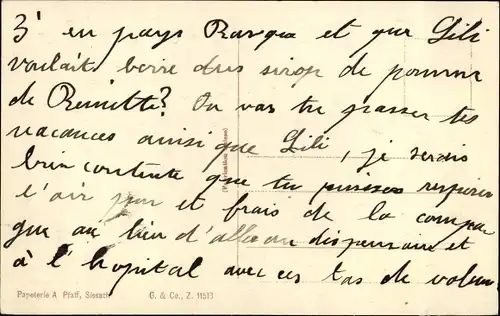 3' en pays Basque et que Lili
voulait boire du sirop de pomme
de Reinette? Ou vas tu passer tes
vacances ainsi que Lili, je serais
bien contente que tu puisses respirer
l'air pur et frais de la campa
gne au lieu d'aller au dispensaire et
à l'hopital avec ces tas de
Papeterie A Pfaff, Sissach G. & Co., Z. 11513